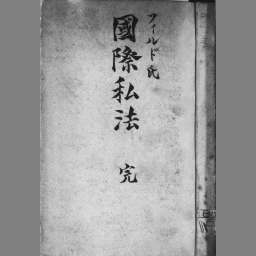 フィールド氏
國際私法
完